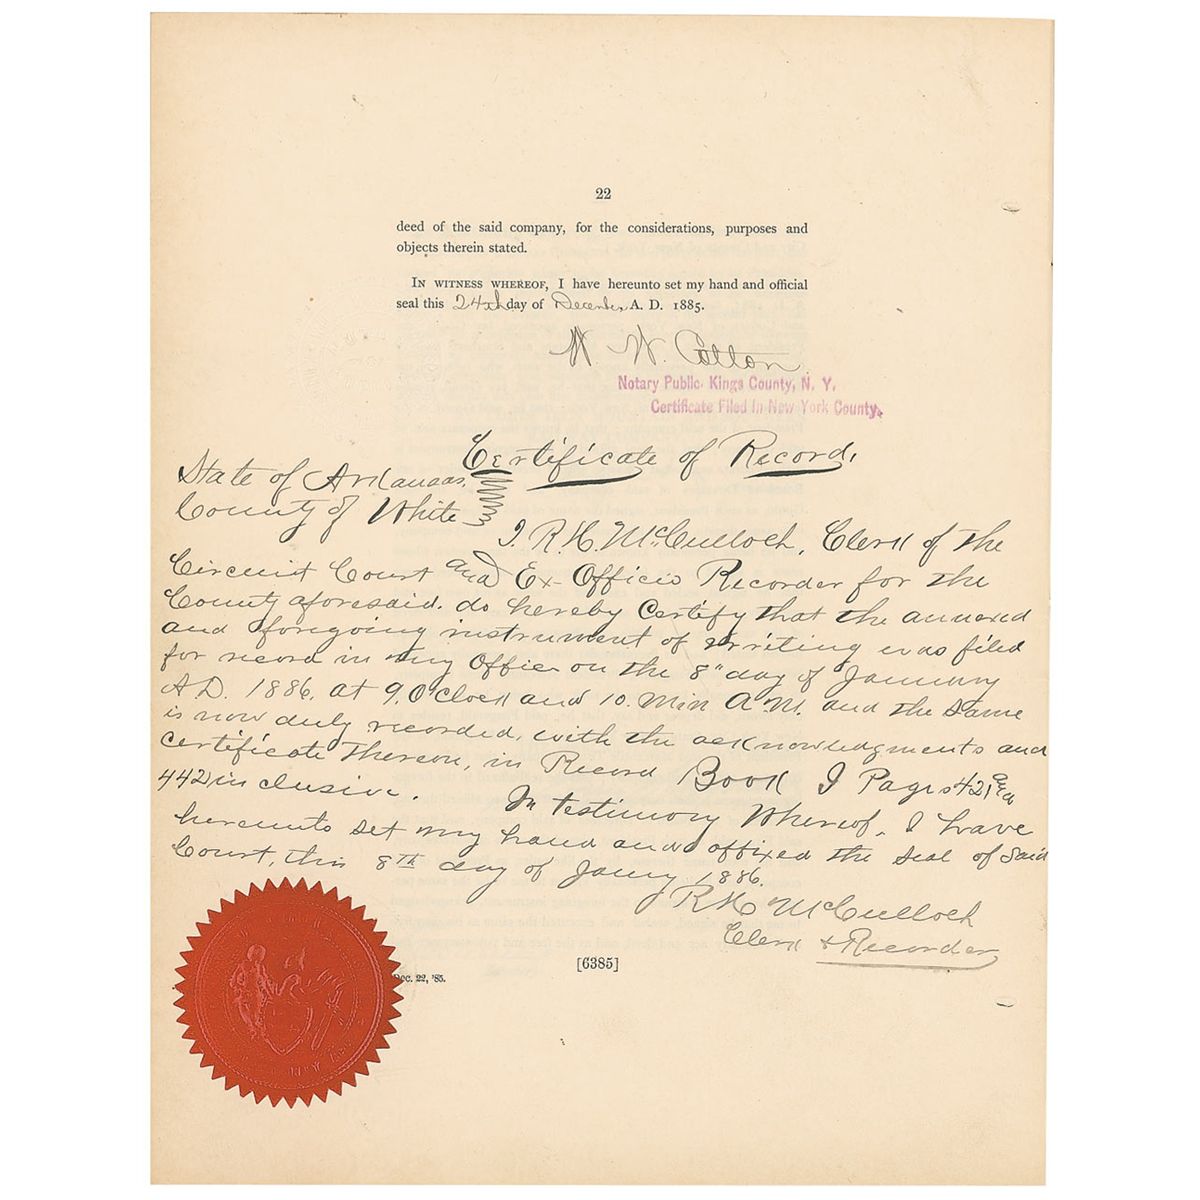 22
deed of the said company, for the considerations, purposes and
objects therein stated.
IN WITNESS WHEREOF, I have hereunto set my hand and official
seal this 24th day of December A. D. 1885.
W. Cotton
Notary Public, Kings County, N. Y.
Certificate Filed in New York County.
Certificate of Record.
State of Arkansas
County of White
I. R. H. McCulloch, Clerk of the
Circuit Court and Ex-Officio Recorder for the
County aforesaid. do hereby Certify that the annexed
and foregoing instrument of Writing was filed
for record in my Office on the 8" day of January
A.D. 1886. at 9. O'Clock and 10. Min A.M. and the same
is now duly recorded, with the acknowledgments and
certificate thereon, in Record Book I Pages 421 and
442 inclusive.
In testimony Whereof, I have
hereunto set my hand and affixed the seal of said
Court, this 8th day of Jany 1886.
R H McCulloch
Clerk & Recorder
[6385]
Dec. 22, '85.